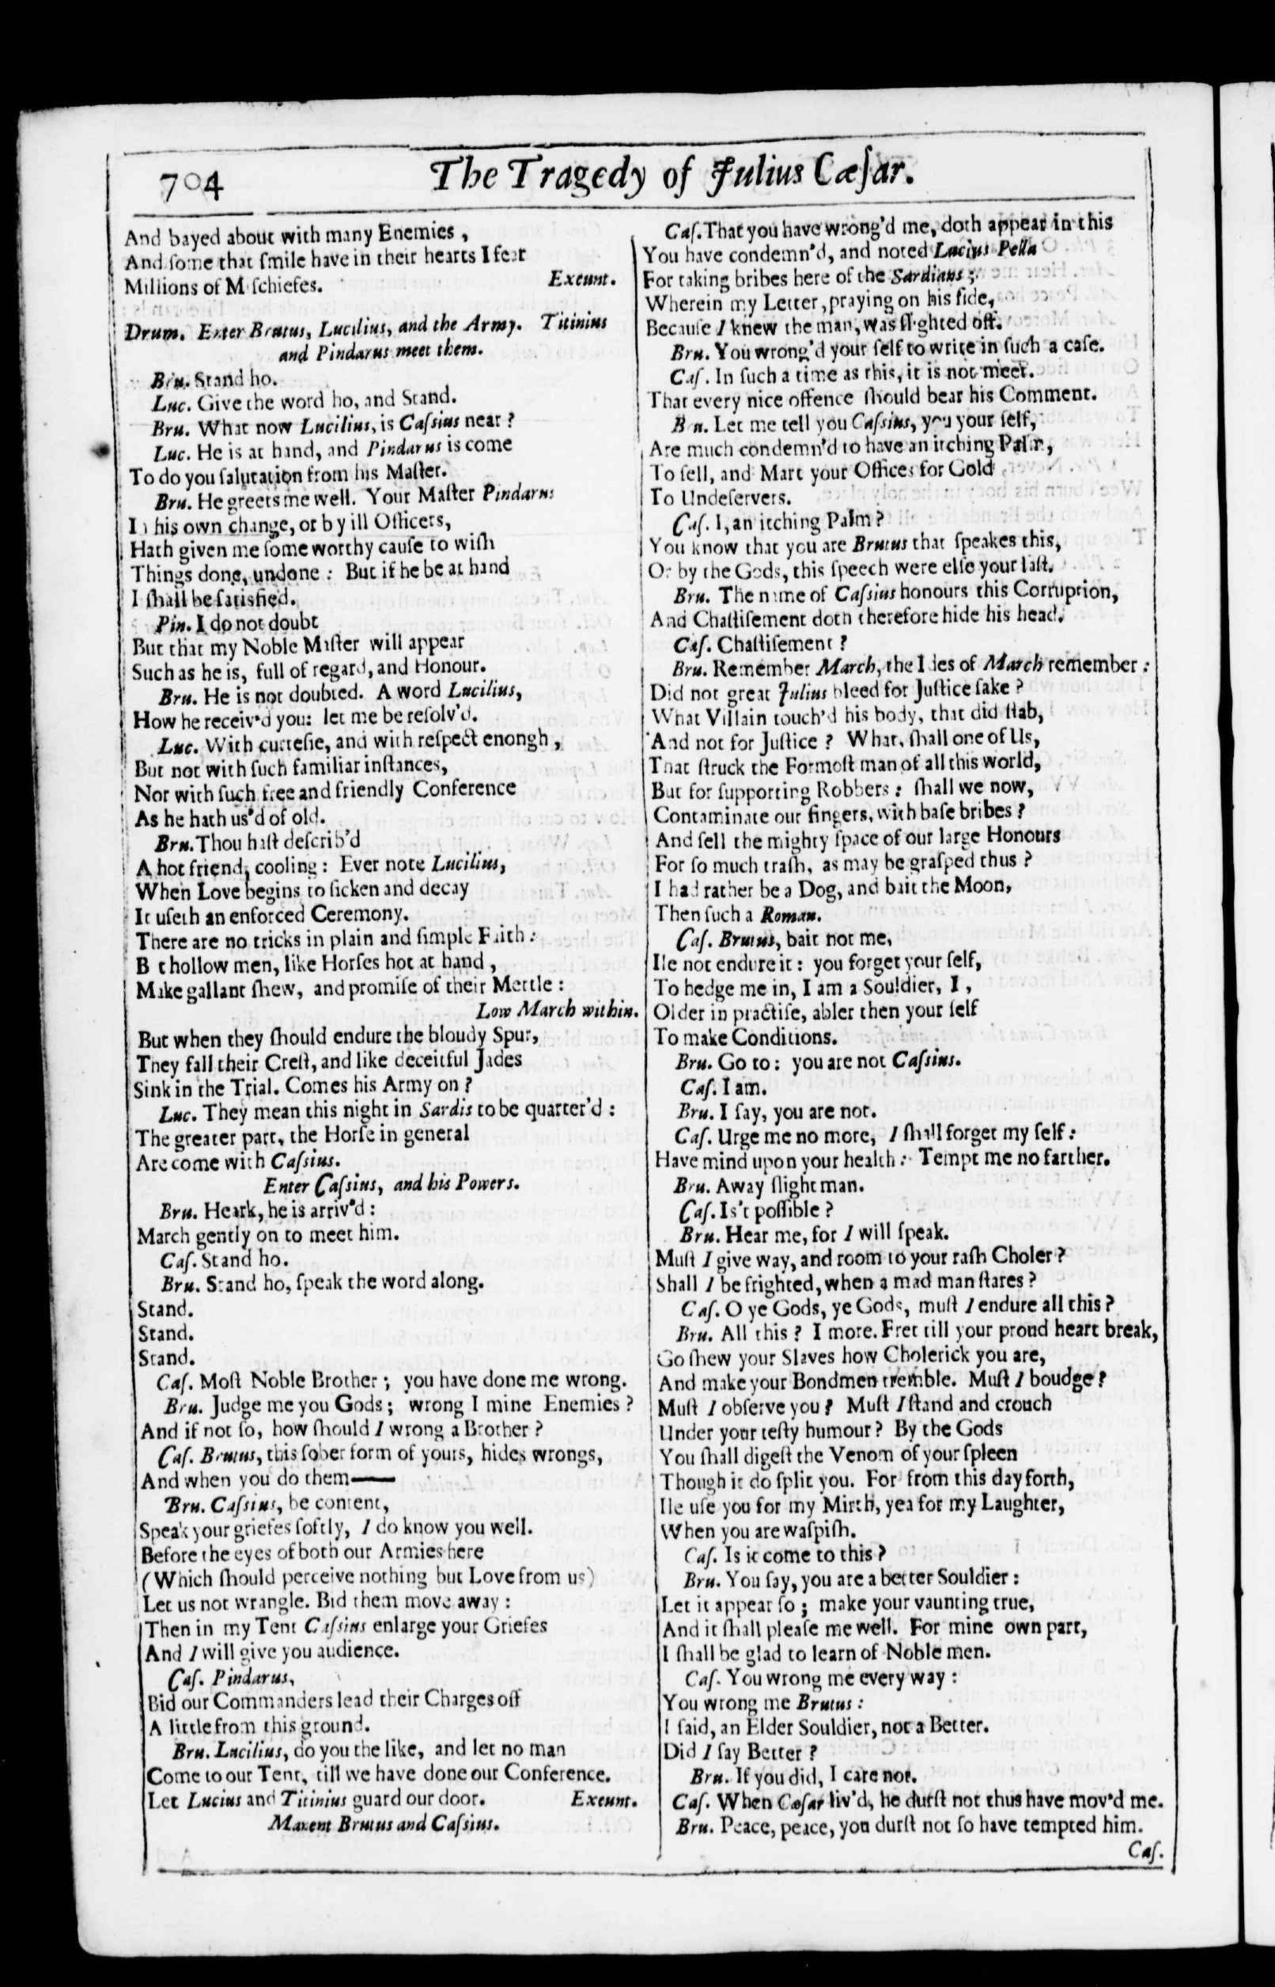 704
The Tragedy of Julius Cæſar.
And bayed about with many Enemies,
And ſome that ſmile have in their hearts I fear
Millions of M ſchiefes. Exeunt.
Drum. Enter Brutus, Lucilius, and the Army. Titinius
and Pindarus meet them.
Bru. Stand ho.
Luc. Give the word ho, and Stand.
Bru. What now Lucilius, is Caſſius near?
Luc. He is at hand, and Pindarus is come
To do you ſalutation from his Maſter.
Bru. He greets me well. Your Maſter Pindarus
In his own change, or by ill Officers,
Hath given me ſome worthy cauſe to wiſh
Things done, undone: But if he be at hand
I ſhall be ſatisfied.
Pin. I do not doubt
But that my Noble Maſter will appear
Such as he is, full of regard, and Honour.
Bru. He is not doubted. A word Lucilius,
How he receiv'd you: let me be reſolv'd.
Luc. With curteſie, and with reſpect enongh,
But not with ſuch familiar inſtances,
Nor with ſuch free and friendly Conference
As he hath us'd of old.
Bru. Thou haſt deſcrib'd
A hot friend, cooling: Ever note Lucilius,
When Love begins to ſicken and decay
It uſeth an enforced Ceremony.
There are no tricks in plain and ſimple Faith:
B t hollow men, like Horſes hot at hand,
Make gallant ſhew, and promiſe of their Mettle:
Low March within.
But when they ſhould endure the bloudy Spur,
They fall their Creſt, and like deceitful Jades
Sink in the Trial. Comes his Army on?
Luc. They mean this night in Sardis to be quarter'd:
The greater part, the Horſe in general
Are come with Caſſius.
Enter Caſſius, and his Powers.
Bru. Heark, he is arriv'd:
March gently on to meet him.
Caſ. Stand ho.
Bru. Stand ho, ſpeak the word along.
Stand.
Stand.
Stand.
Caſ. Moſt Noble Brother; you have done me wrong.
Bru. Judge me you Gods; wrong I mine Enemies?
And if not ſo, how ſhould I wrong a Brother?
Caſ. Brutus, this ſober form of yours, hides wrongs,
And when you do them——
Bru. Caſſius, be content,
Speak your griefes ſoftly, I do know you well.
Before the eyes of both our Armies here
(Which ſhould perceive nothing but Love from us)
Let us not wrangle. Bid them move away:
Then in my Tent Caſſius enlarge your Griefes
And I will give you audience.
Caſ. Pindarus,
Bid our Commanders lead their Charges off
A little from this ground.
Bru. Lucilius, do you the like, and let no man
Come to our Tent, till we have done our Conference.
Let Lucius and Titinius guard our door. Exeunt.
Manent Brutus and Caſſius.
Caſ. That you have wrong'd me, doth appear in this
You have condemn'd, and noted Lucius Pella
For taking bribes here of the Sardians;
Wherein my Letter, praying on his ſide,
Becauſe I knew the man, was ſlighted off.
Bru. You wrong'd your ſelf to write in ſuch a caſe.
Caſ. In ſuch a time as this, it is not meet.
That every nice offence ſhould bear his Comment.
Bru. Let me tell you Caſſius, you your ſelf,
Are much condemn'd to have an itching Palm,
To ſell, and Mart your Offices for Gold
To Undeſervers.
Caſ. I, an itching Palm?
You know that you are Brutus that ſpeakes this,
Or by the Gods, this ſpeech were elſe your laſt.
Bru. The name of Caſſius honours this Corruption,
And Chaſtiſement doth therefore hide his head.
Caſ. Chaſtiſement?
Bru. Remember March, the Ides of March remember:
Did not great Julius bleed for Juſtice ſake?
What Villain touch'd his body, that did ſtab,
And not for Juſtice? What, ſhall one of Us,
That ſtruck the Formoſt man of all this world,
But for ſupporting Robbers: ſhall we now,
Contaminate our fingers, with baſe bribes?
And ſell the mighty ſpace of our large Honours
For ſo much traſh, as may be graſped thus?
I had rather be a Dog, and bait the Moon,
Then ſuch a Roman.
Caſ. Brutus, bait not me,
Ile not endure it: you forget your ſelf,
To hedge me in, I am a Souldier, I,
Older in practiſe, abler then your ſelf
To make Conditions.
Bru. Go to: you are not Caſſius.
Caſ. I am.
Bru. I ſay, you are not.
Caſ. Urge me no more, I ſhall forget my ſelf:
Have mind upon your health: Tempt me no farther.
Bru. Away ſlight man.
Caſ. Is't poſſible?
Bru. Hear me, for I will ſpeak.
Muſt I give way, and room to your raſh Choler?
Shall I be frighted, when a mad man ſtares?
Caſ. O ye Gods, ye Gods, muſt I endure all this?
Bru. All this? I more. Fret till your proud heart break,
Go ſhew your Slaves how Cholerick you are,
And make your Bondmen tremble. Muſt I boudge?
Muſt I obſerve you? Muſt I ſtand and crouch
Under your teſty humour? By the Gods
You ſhall digeſt the Venom of your ſpleen
Though it do ſplit you. For from this day forth,
Ile uſe you for my Mirth, yea for my Laughter,
When you are waſpiſh.
Caſ. Is it come to this?
Bru. You ſay, you are a better Souldier:
Let it appear ſo; make your vaunting true,
And it ſhall pleaſe me well. For mine own part,
I ſhall be glad to learn of Noble men.
Caſ. You wrong me every way:
You wrong me Brutus:
I ſaid, an Elder Souldier, not a Better.
Did I ſay Better?
Bru. If you did, I care not.
Caſ. When Cæſar liv'd, he durſt not thus have mov'd me.
Bru. Peace, peace, you durſt not ſo have tempted him.
Caſ.